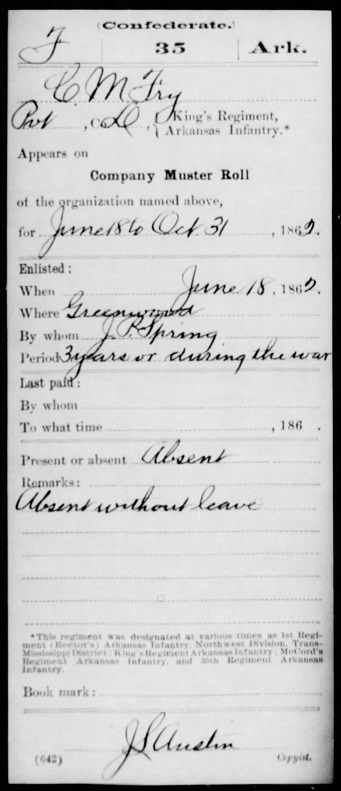 (Confederate.)
F 35 Ark.
C. M Fry
Pvt, Co. D, King's Regiment,
Arkansas Infantry.*
Appears on
Company Muster Roll
of the organization named above,
for June 18 to Oct. 31, 1862.
Enlisted:
When June 18, 1862.
Where Greenwood
By whom J. P. Spring
Period 3 years or during the war
Last paid:
By whom
To what time , 186 .
Present or absent Absent
Remarks:
Absent without leave
*This regiment was designated at various times as 1st Regi-
ment (Rector's) Arkansas Infantry, Northwest Division, Trans-
Mississippi District; King's Regiment Arkansas Infantry; McCord's
Regiment Arkansas Infantry, and 35th Regiment Arkansas
Infantry.
Book mark:
J S Austin
(642) Copyist.